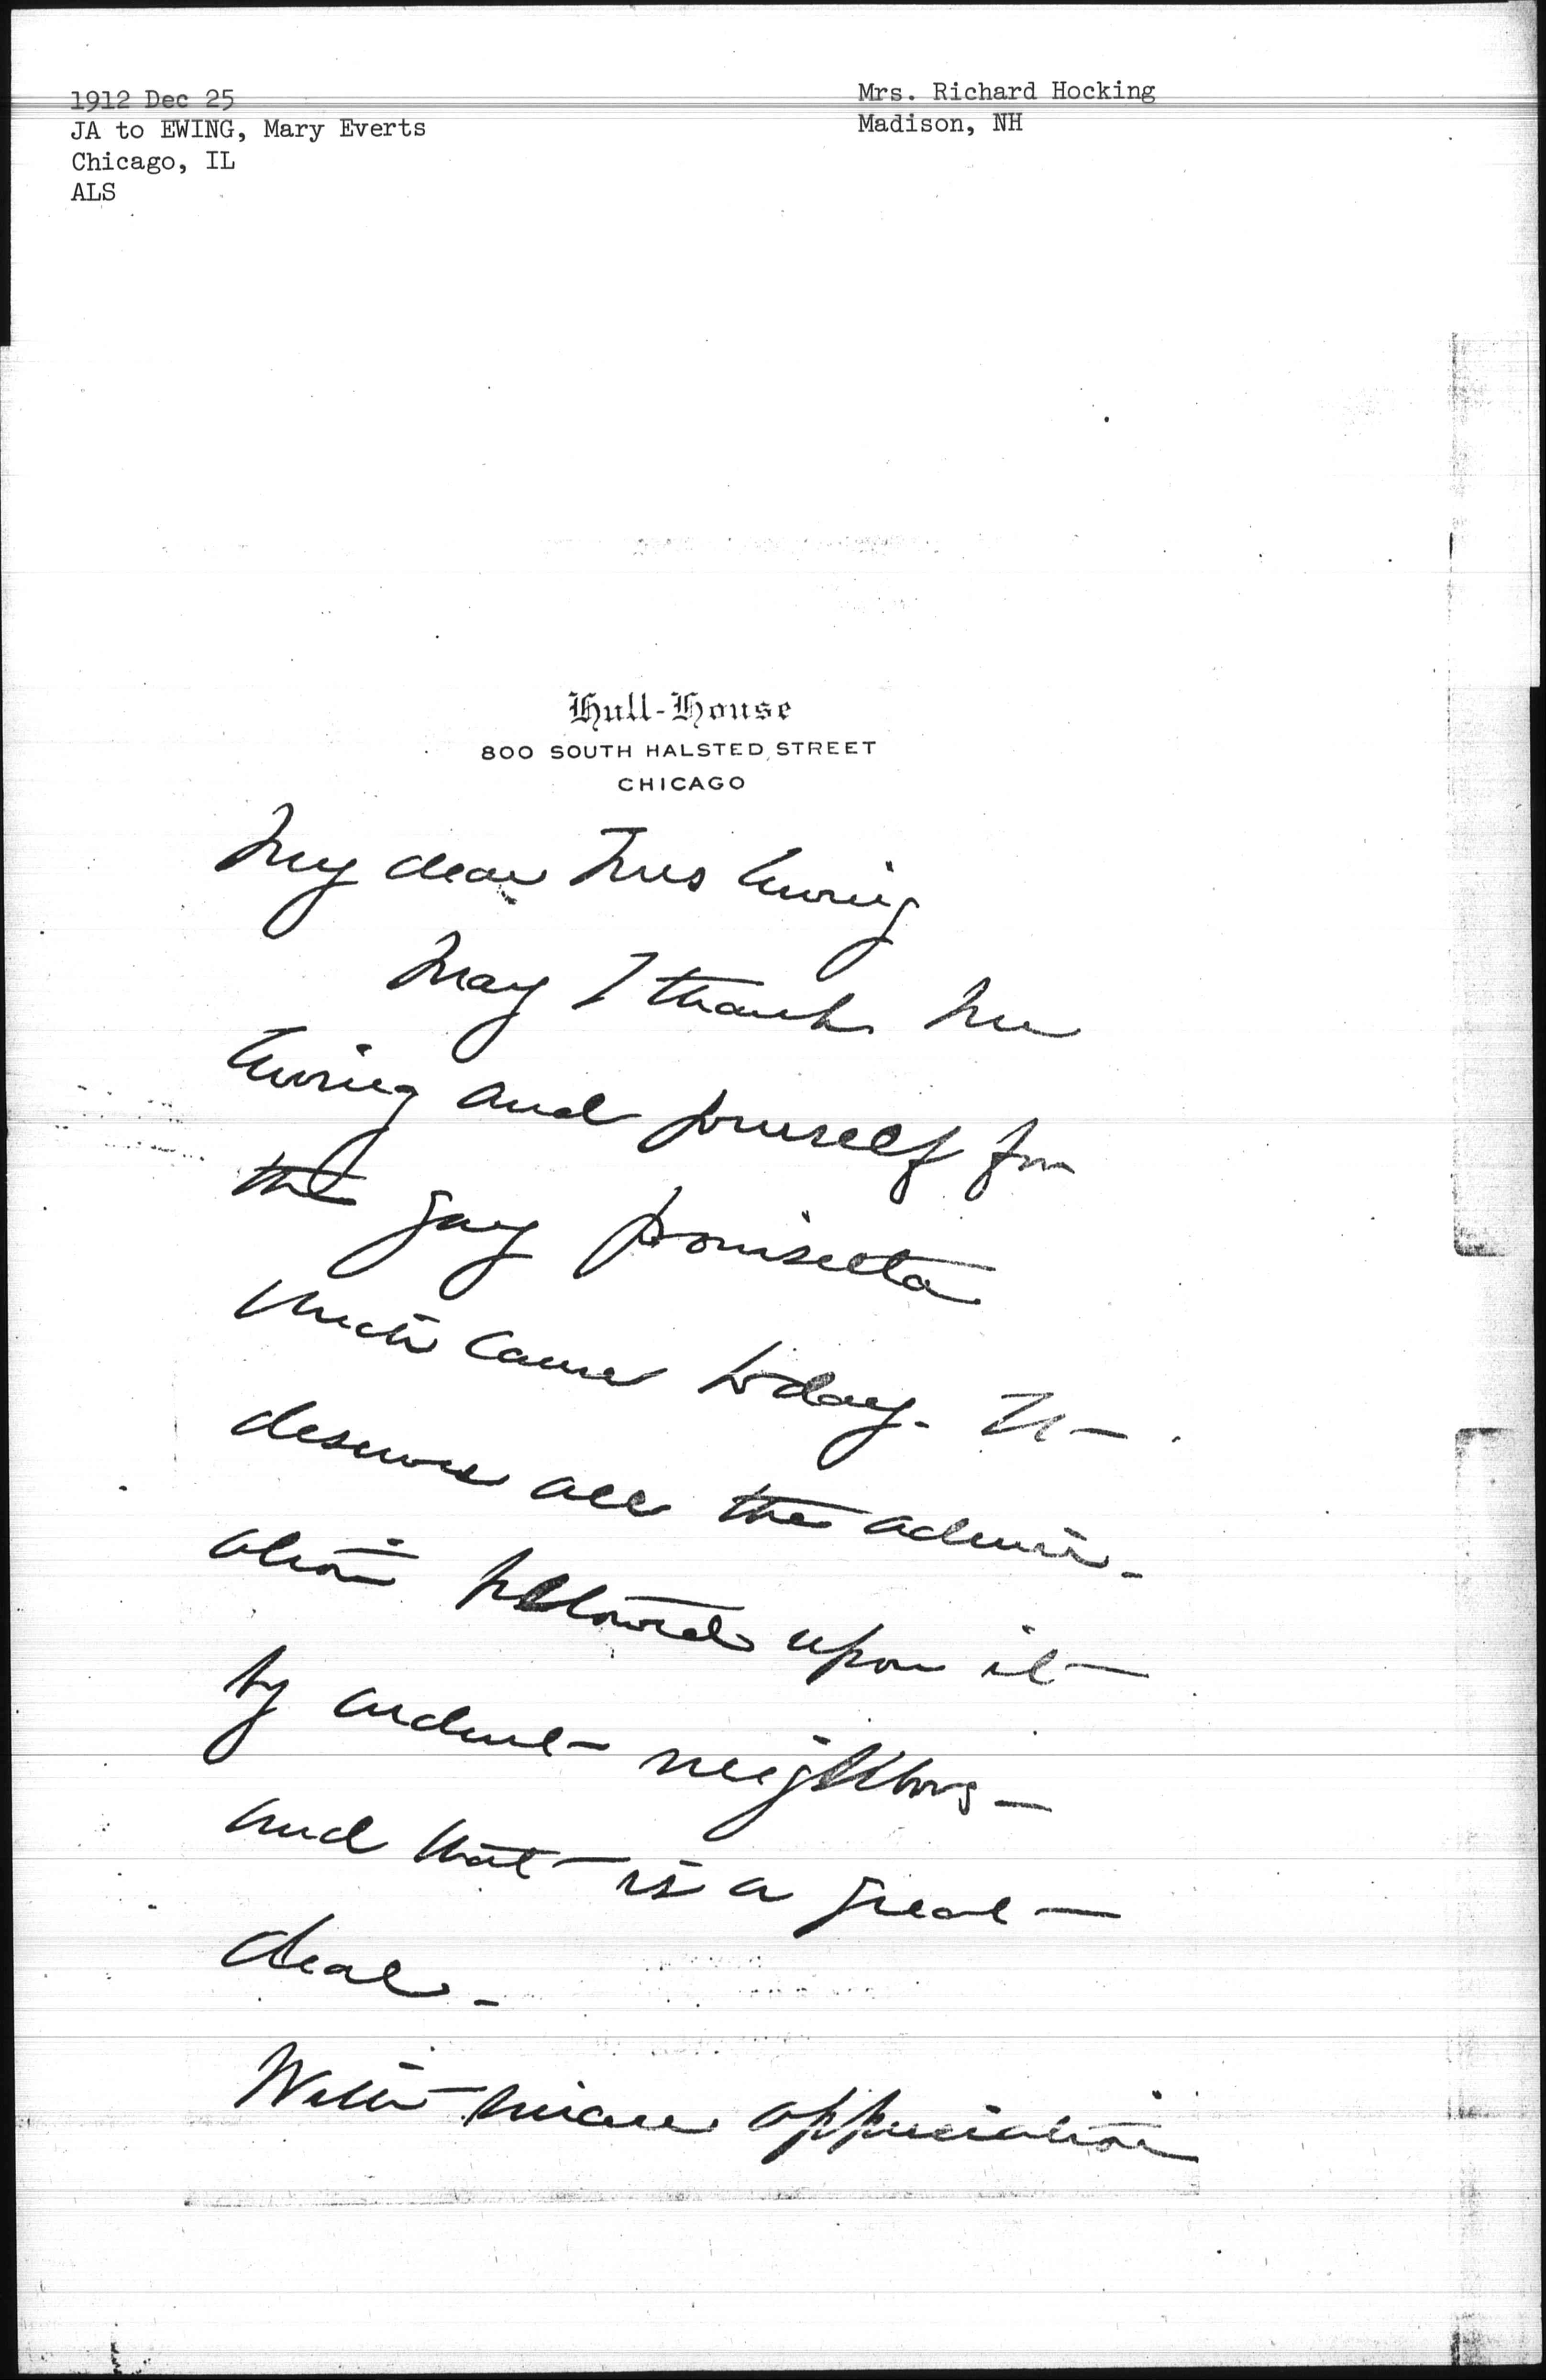 1912 Dec 25
JA to EWING, Mary Everts
Chicago, IL
ALS
Mrs. Richard Hocking
Madison, NH
Hull-House
800 SOUTH HALSTED STREET
CHICAGO
My dear Mrs Ewing
May I thank Mr
Ewing and yourself for
the gay poinsetta
which came today. It
deserves all the admir-
ation bestowed upon it
by ardent neighbors —
and that is a great
deal –
With sincere appreciation